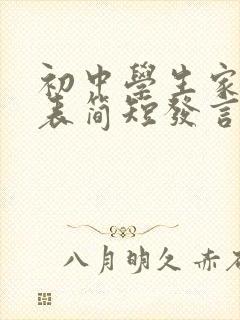 初中學生家
表简短發言
八月明久 赤石